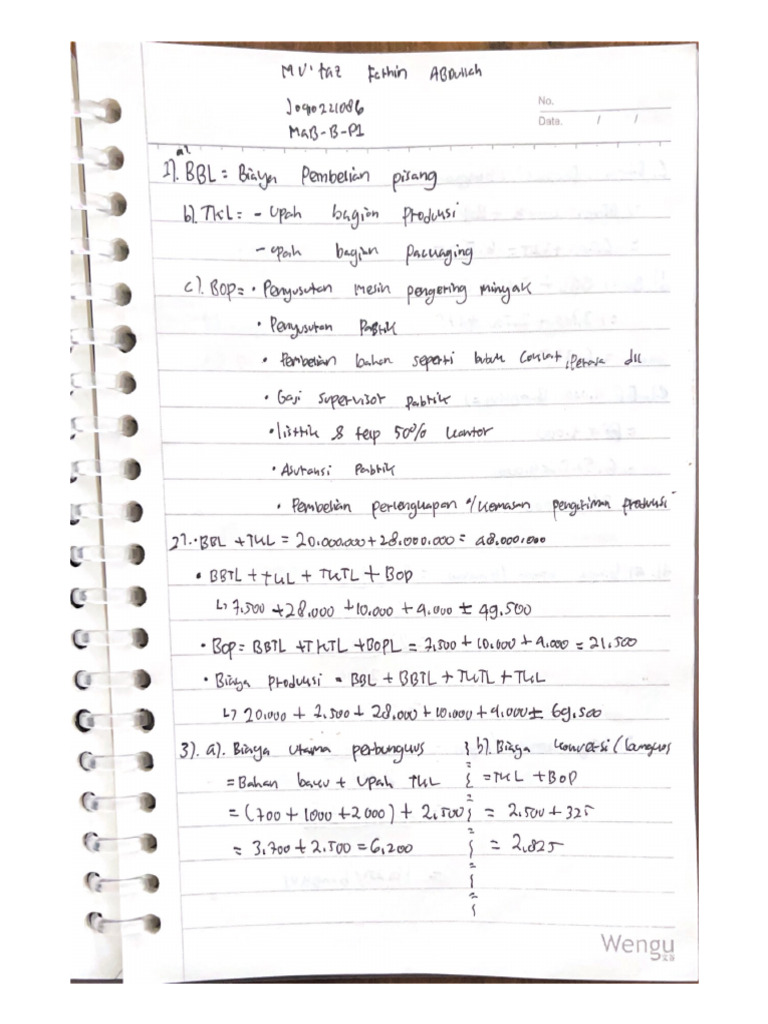 Mu'taz Fathin Abdullah
J0910221086
MAB-B-P1
No.
Date. / /
1). a). BBL = Biaya Pembelian pisang
b). TKL = - Upah bagian Produksi
- upah bagian packaging
c). BOP = • Penyusutan mesin pengering minyak
• Penyusutan Pabrik
• Pembelian bahan seperti bubuk coklat, perasa dll
• Gaji Supervisor pabrik
• listrik & telp 50% kantor
• Asuransi Pabrik
• Pembelian perlengkapan /kemasan pengiriman produksi
2). • BBL + TKL = 20.000.000 + 28.000.000 = 48.000.000
• BBTL + TKL + TKTL + BOP
↳ 7.500 + 28.000 + 10.000 + 4.000 = 49.500
• BOP = BBTL + TKTL + BOPL = 7.500 + 10.000 + 4.000 = 21.500
• Biaya produksi = BBL + BBTL + TKTL + TKL
↳ 20.000 + 7.500 + 28.000 + 10.000 + 4.000 = 69.500
3). a). Biaya utama perbungkus
= Bahan baku + Upah TKL
= (700 + 1000 + 2000) + 2.500
= 3.700 + 2.500 = 6.200
b). Biaya konversi /bungkus
= TKL + BOP
= 2.500 + 325
= 2.825
Wengu